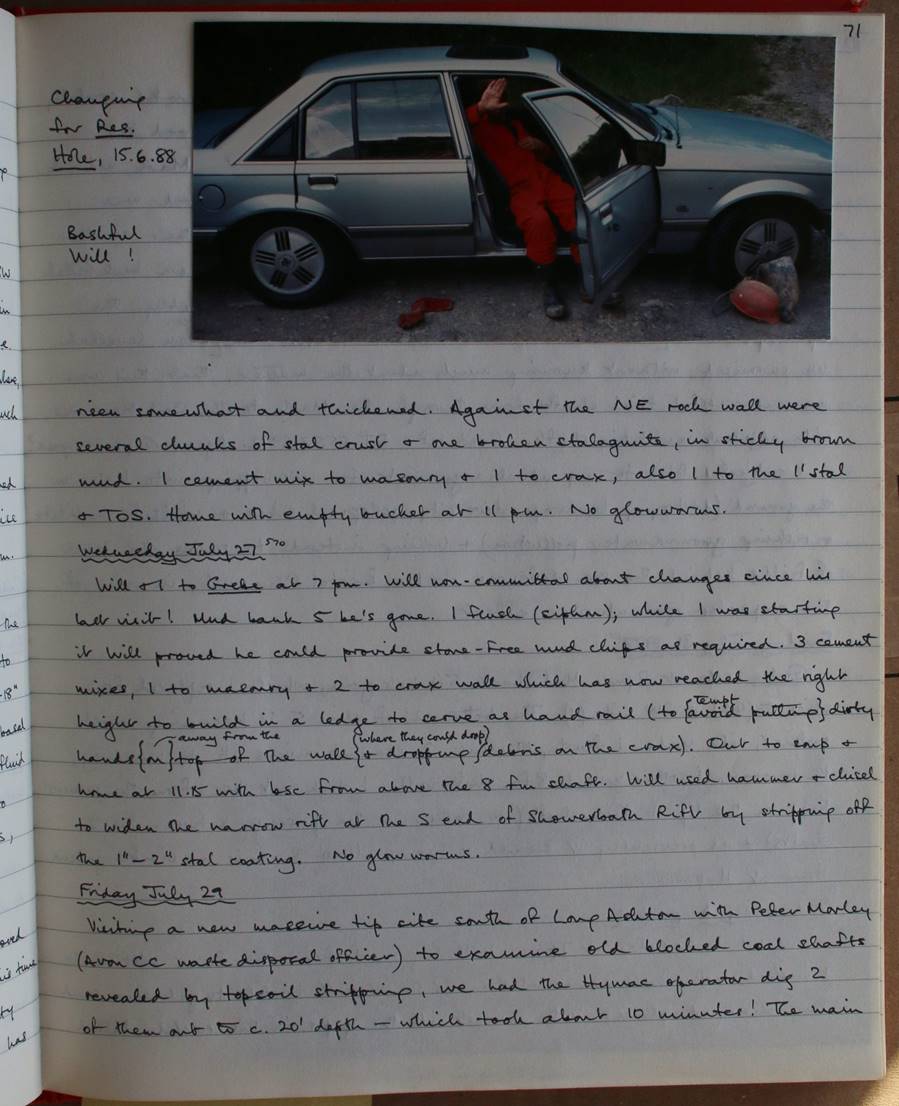 71
Changing
for Res.
Hole, 15.6.88
Bashful
Will !
risen somewhat and thickened. Against the NE rock wall were
several chunks of stal crust + one broken stalagmite, in sticky brown
mud. 1 cement mix to masonry + 1 to crax, also 1 to the 1' stal
+ TOS. Home with empty bucket at 11 pm. No glowworms.
Wednesday July 27 570
Will + I to Grebe at 7 pm. Will non-committal about changes since his
last visit! Mud bank 5 be's gone. 1 flush (siphon); while I was starting
it Will proved he could provide stone-free mud chips as required. 3 cement
mixes, 1 to masonry + 2 to crax wall which has now reached the right
height to build in a ledge to serve as hand rail (to {tempt avoid putting} dirty
hands {on} top away from the of the wall {where they could drop + dropping} debris on the crax). Out to
home at 11.15 with bsc from above the 8 fm shaft. Will used hammer + chisel
to widen the narrow rift at the S end of Showerbath Rift by stripping off
the 1"-2" stal coating. No glow worms.
Friday July 29
Visiting a new massive tip site south of Long Ashton with Peter Morley
(Avon CC waste disposal officer) to examine old blocked coal shafts
revealed by topsoil stripping, we had the Hymac operator dig 2
of them out to c. 20' depth – which took about 10 minutes! The main